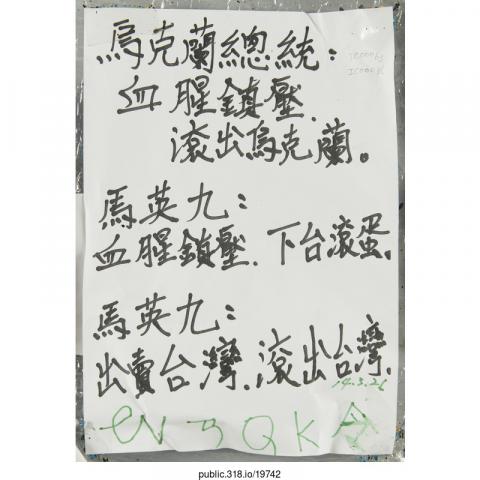 烏克蘭總統：
血腥鎮壓.
滾出烏克蘭。
馬英九：
血腥鎮壓. 下台滾蛋.
馬英九：
出賣台灣. 滾出台灣.
14.3.26
public.318.io/19742